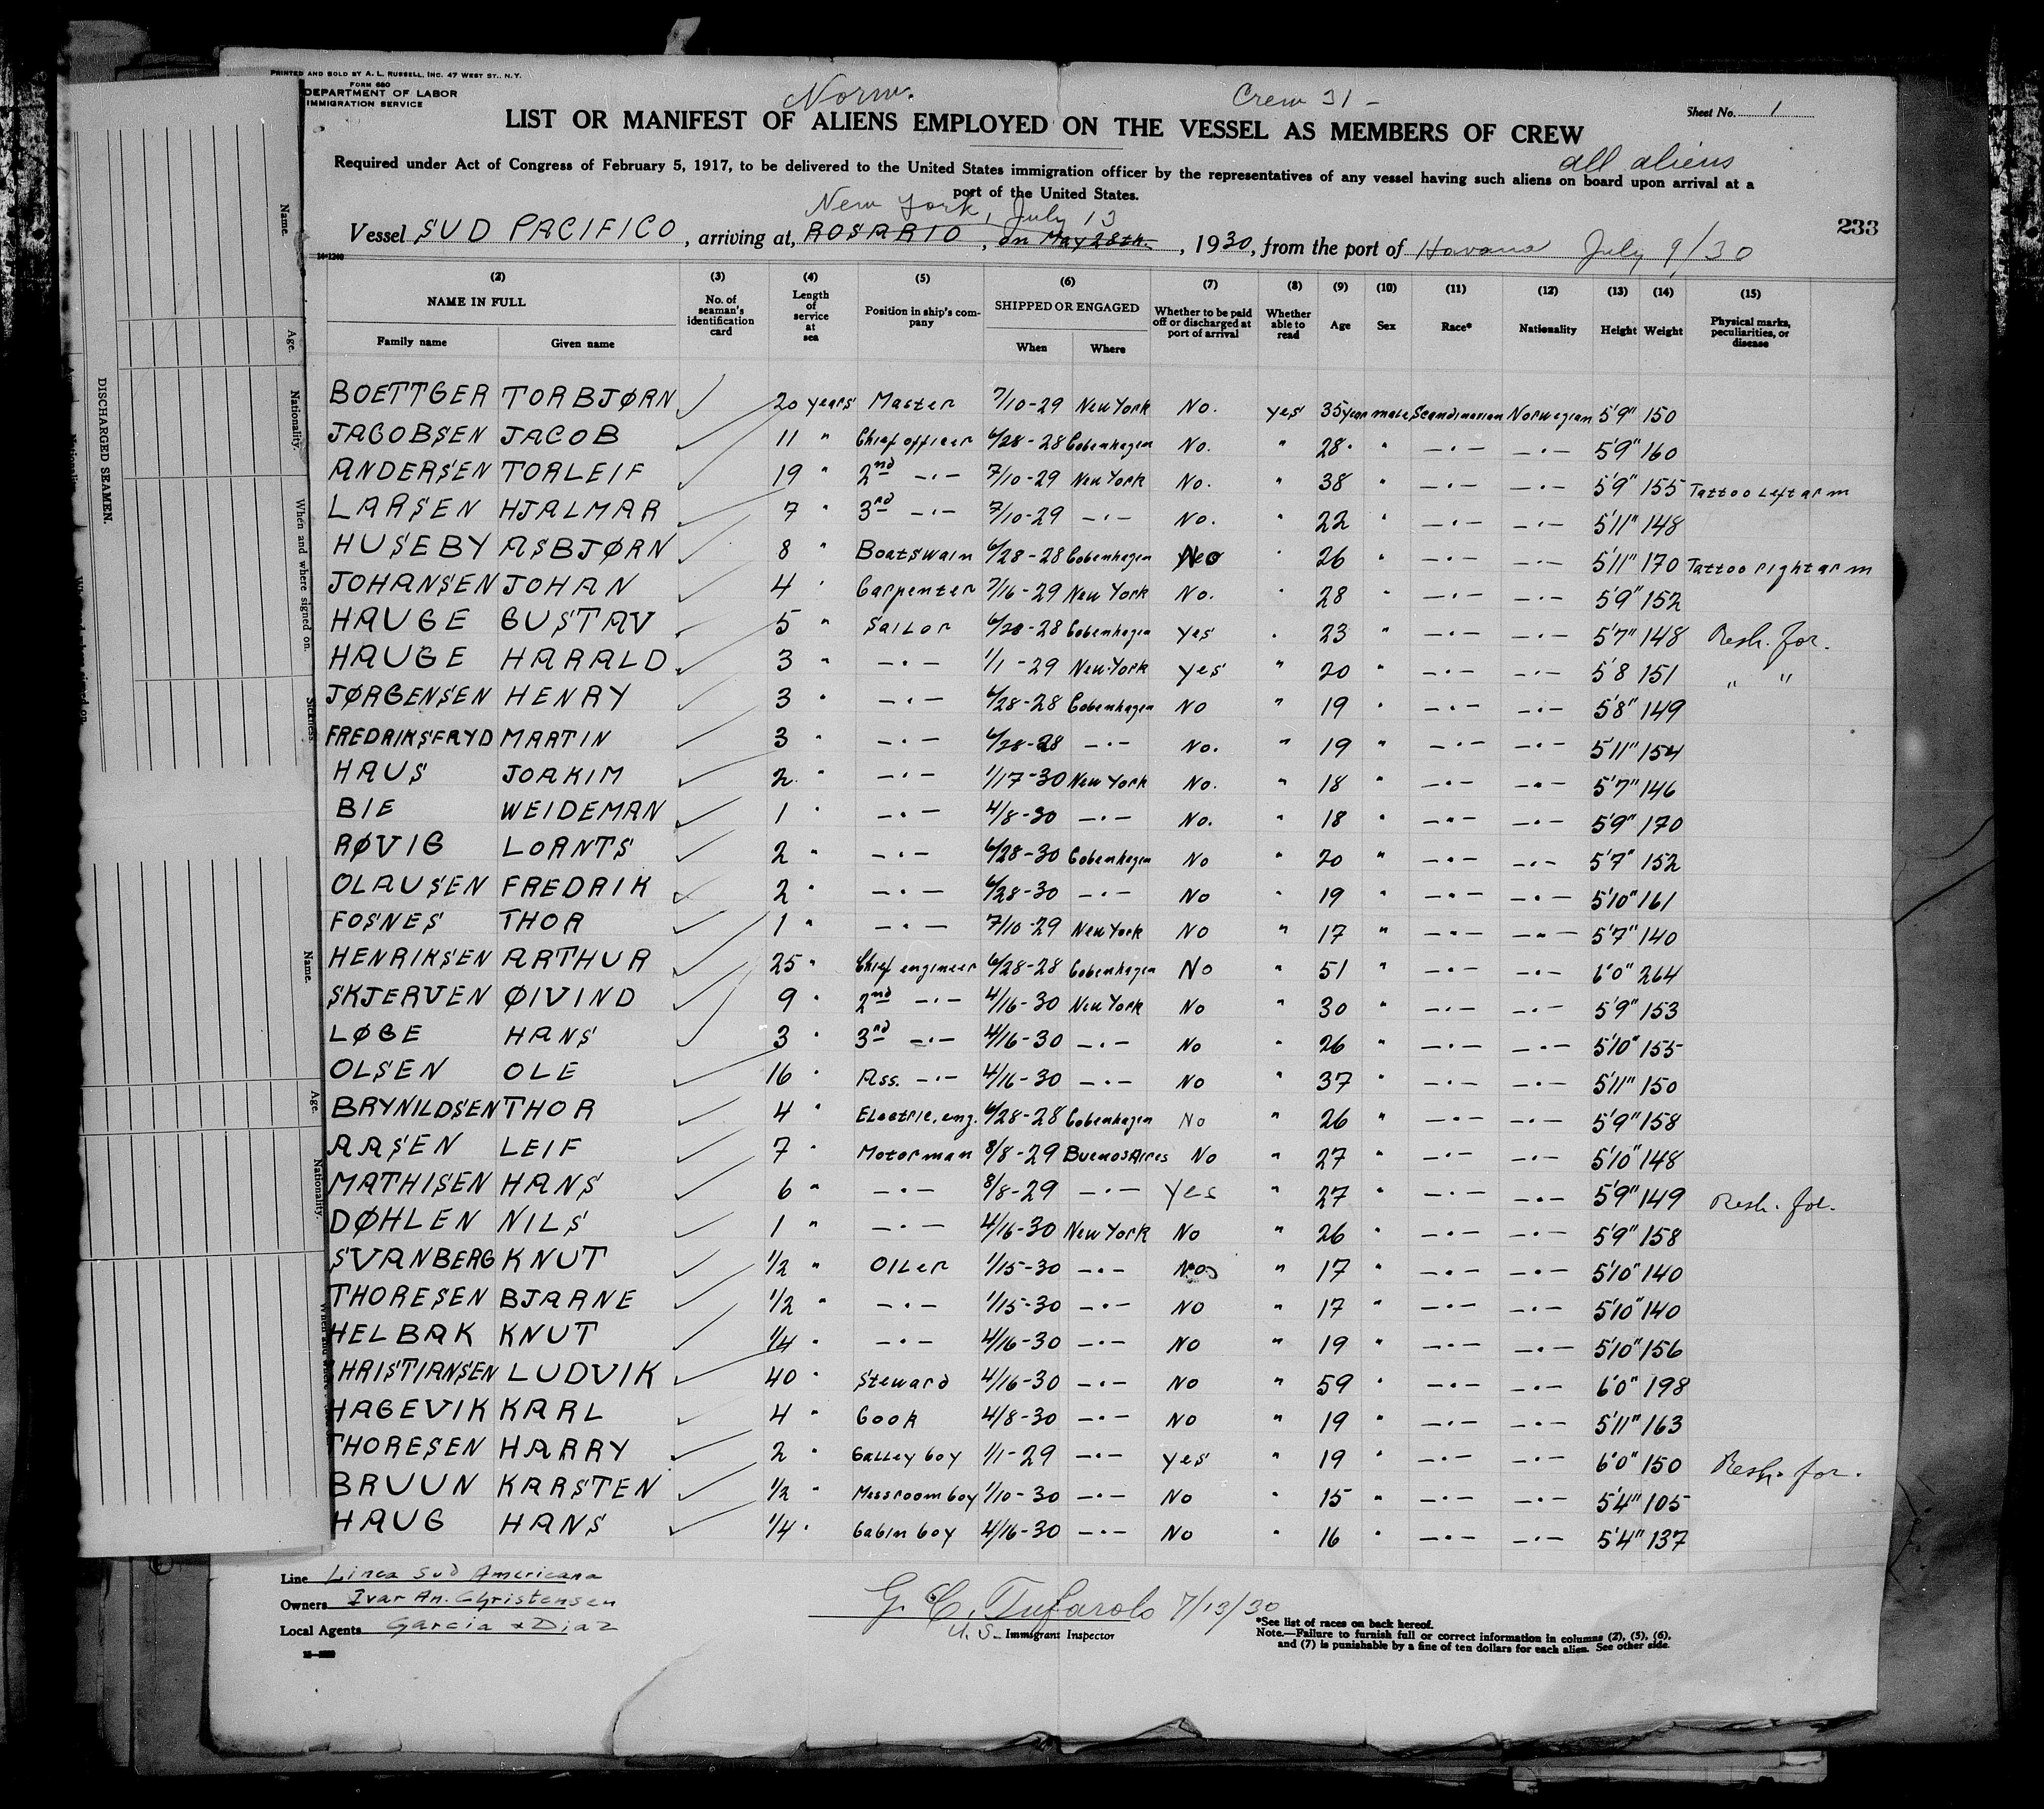 PRINTED AND SOLD BY A. L. RUSSELL, INC. 47 WEST ST., N.Y.
FORM 680
DEPARTMENT OF LABOR
IMMIGRATION SERVICE
Norw.
Crew 31 -
Sheet No. 1
LIST OR MANIFEST OF ALIENS EMPLOYED ON THE VESSEL AS MEMBERS OF CREW
all aliens
Required under Act of Congress of February 5, 1917, to be delivered to the United States immigration officer by the representatives of any vessel having such aliens on board upon arrival at a
port of the United States.
New York, July 13
233
Vessel SUD PACIFICO, arriving at, ROSARIO, on May 28th., 1930, from the port of Havana July 9/30
(2) (3) (4) (5) (6) (7) (8) (9) (10) (11) (12) (13) (14) (15)
NAME IN FULL No. of seaman's identification card Length of service at sea Position in ship's company SHIPPED OR ENGAGED Whether to be paid off or discharged at port of arrival Whether able to read Age Sex Race* Nationality Height Weight Physical marks, peculiarities, or disease
Family name Given name When Where
BOETTGER TORBJØRN 20 years Master 7/10-29 New York No. yes 35 year male Scandinavian Norwegian 5'9" 150
JACOBSEN JACOB 11 " Chief officer 6/28-28 Cobenhagen No. " 28 " -·- -·- 5'9" 160
ANDERSEN TORLEIF 19 " 2nd -·- 7/10-29 New York No. " 38 " -·- -·- 5'9" 155 Tattoo Left arm
LARSEN HJALMAR 7 " 3rd -·- 7/10-29 -·- No. " 22 " -·- -·- 5'11" 148
HUSEBY ASBJØRN 8 " Boatswain 6/28-28 Cobenhagen No " 26 " -·- -·- 5'11" 170 Tattoo right arm
JOHANSEN JOHAN 4 " Carpenter 7/16-29 New York No. " 28 " -·- -·- 5'9" 152
HAUGE GUSTAV 5 " Sailor 6/28-28 Cobenhagen yes " 23 " -·- -·- 5'7" 148 Resh. for.
HAUGE HARALD 3 " -·- 1/1-29 New York yes " 20 " -·- -·- 5'8 151 " "
JØRGENSEN HENRY 3 " -·- 6/28-28 Cobenhagen No " 19 " -·- -·- 5'8" 149
FREDRIKSFRYD MARTIN 3 " -·- 6/28-28 -·- No. " 19 " -·- -·- 5'11" 154
HAUS JOAKIM 2 " -·- 1/17-30 New York No. " 18 " -·- -·- 5'7" 146
BIE WEIDEMAN 1 " -·- 4/8-30 -·- No. " 18 " -·- -·- 5'9" 170
RØVIG LORNTS 2 " -·- 6/28-30 Cobenhagen No " 20 " -·- -·- 5'7" 152
OLAUSEN FREDRIK 2 " -·- 6/28-30 -·- No " 19 " -·- -·- 5'10" 161
FOSNES THOR 1 " -·- 7/10-29 New York No " 17 " -·- -·- 5'7" 140
HENRIKSEN ARTHUR 25 " Chief engineer 6/28-28 Cobenhagen No " 51 " -·- -·- 6'0" 264
SKJERVEN ØIVIND 9 " 2nd -·- 4/16-30 New York No " 30 " -·- -·- 5'9" 153
LØGE HANS 3 " 3rd -·- 4/16-30 -·- No " 26 " -·- -·- 5'10" 155
OLSEN OLE 16 " Ass. -·- 4/16-30 -·- No " 37 " -·- -·- 5'11" 150
BRYNILDSEN THOR 4 " Electric. eng. 6/28-28 Cobenhagen No " 26 " -·- -·- 5'9" 158
AASEN LEIF 7 " Motorman 8/8-29 Buenos Aires No " 27 " -·- -·- 5'10" 148
MATHISEN HANS 6 " -·- 8/8-29 -·- yes " 27 " -·- -·- 5'9" 149 Resh. for.
DØHLEN NILS 1 " -·- 4/16-30 New York No " 26 " -·- -·- 5'9" 158
SVANBERG KNUT 1/2 " Oiler 1/15-30 -·- No " 17 " -·- -·- 5'10" 140
THORESEN BJARNE 1/2 " -·- 1/15-30 -·- No " 17 " -·- -·- 5'10" 140
HELBAK KNUT 1/4 " -·- 4/16-30 -·- No " 19 " -·- -·- 5'10" 156
HRISTIANSEN LUDVIK 40 " Steward 4/16-30 -·- No " 59 " -·- -·- 6'0" 198
HAGEVIK KARL 4 " Cook 4/8-30 -·- No " 19 " -·- -·- 5'11" 163
THORESEN HARRY 2 " Galley boy 1/1-29 -·- yes " 19 " -·- -·- 6'0" 150 Resh. for.
BRUUN KARSTEN 1/2 " Messroom boy 1/10-30 -·- No " 15 " -·- -·- 5'4" 105
HAUG HANS 1/4 " Cabin boy 4/16-30 -·- No " 16 " -·- -·- 5'4" 137
Line Linea Sud Americana
Owners Ivar An. Christensen
Local Agents Garcia & Diaz
G. C. Tufarolo 7/13/30
U.S. Immigrant Inspector
*See list of races on back hereof.
Note.—Failure to furnish full or correct information in columns (2), (5), (6),
and (7) is punishable by a fine of ten dollars for each alien. See other side.
DISCHARGED SEAMEN.
Name.
Age.
Nationality.
When and where signed on.
Sickness.
Name.
Age.
Nationality.